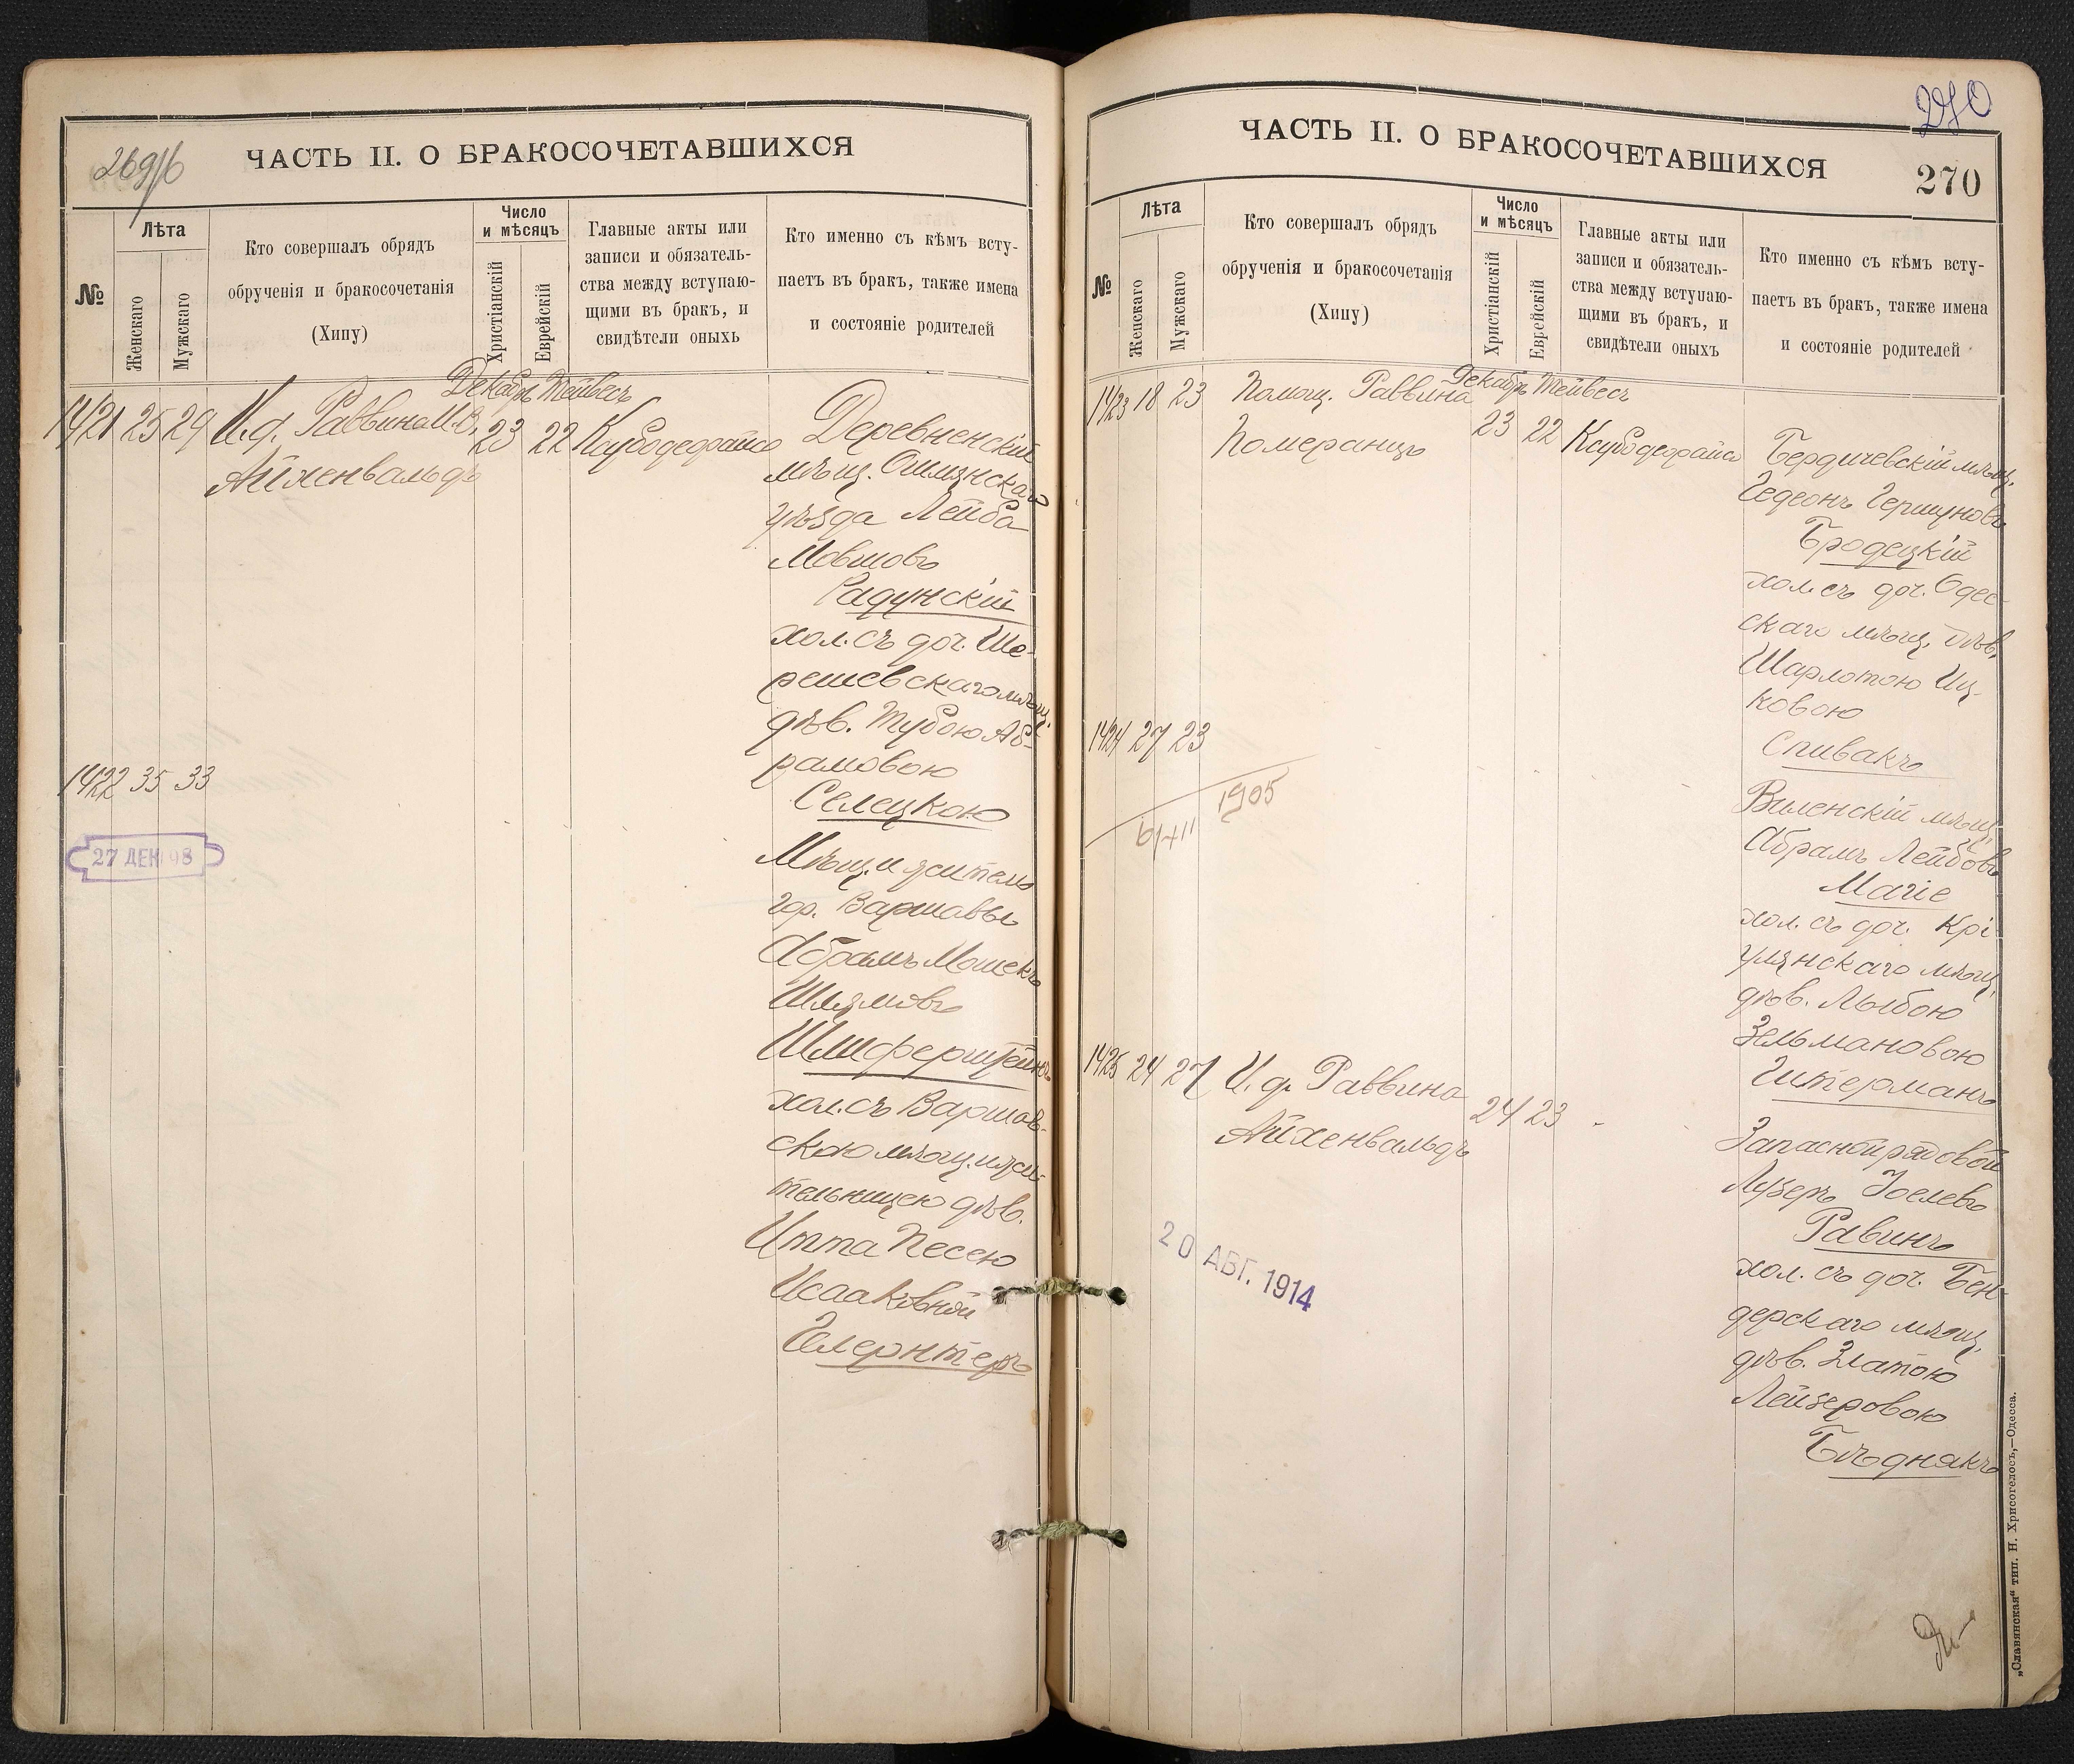 269/б
ЧАСТЬ II. О БРАКОСОЧЕТАВШИХСЯ
№
Лѣта
Женскаго
Мужскаго
Кто совершалъ обрядъ
обрученія и бракосочетанія
(Хипу)
Число
и мѣсяцъ
Христіанскій
Еврейскій
Главные акты или
записи и обязатель-
ства между вступаю-
щими въ бракъ, и
свидѣтели оныхъ
Кто именно съ кѣмъ всту-
паетъ въ бракъ, также имена
и состояніе родителей
Декабрь Тейвесъ
1421 25 29 И.д. Раввина М.В. 23 22
Айхенвальдъ
Деревненскій
мѣщ. Ошмянскаго
уѣзда Лейба
Мовшовъ
Радунскій
хол. съ доч. Ше-
решевскаго мѣщ.
дѣв. Тубою Аб-
рамовою
Селецкою
1422 35 33
27 ДЕК 98
Мѣщ. и житель
гор. Варшавы
Абрамъ Мошекъ
Шлямовъ
Шлиферштейнъ
хол. съ Варшав-
скою мѣщ. и жи-
тельницею дѣв.
Итта Песею
Исааковной
Гелернтеръ
270
ЧАСТЬ II. О БРАКОСОЧЕТАВШИХСЯ
270
№
Лѣта
Женскаго
Мужскаго
Кто совершалъ обрядъ
обрученія и бракосочетанія
(Хипу)
Число
и мѣсяцъ
Христіанскій
Еврейскій
Главные акты или
записи и обязатель-
ства между вступаю-
щими въ бракъ, и
свидѣтели оныхъ
Кто именно съ кѣмъ всту-
паетъ въ бракъ, также имена
и состояніе родителей
Декабрь Тейвесъ
1423 18 23 Помощ. Раввина
Померанцъ 23 22
Бердичевскій мѣщ.
Гедеонъ Гершуновъ
Бродецкій
хол. съ доч. Одес-
скаго мѣщ. дѣв.
Шарлотою Иц-
ковою
Спивакъ
1424 27 23
1905
Виленскій мѣщ.
Абрамъ Лейбовъ
Магіе
хол. съ доч. Крі-
улянскаго мѣщ.
дѣв. Лыбою
Зельмановою
Гитерманъ
1425 24 27 И.д. Раввина 24 23
Айхенвальдъ
Запасной рядовой
Лузеръ Іоелевъ
Равинъ
хол. съ доч. Бен-
дерскаго мѣщ.
дѣв. Златою
Лейзеровою
Бѣднякъ
20 АВГ. 1914
„Славянская“ тип. Н. Хрисогелосъ,—Одесса.